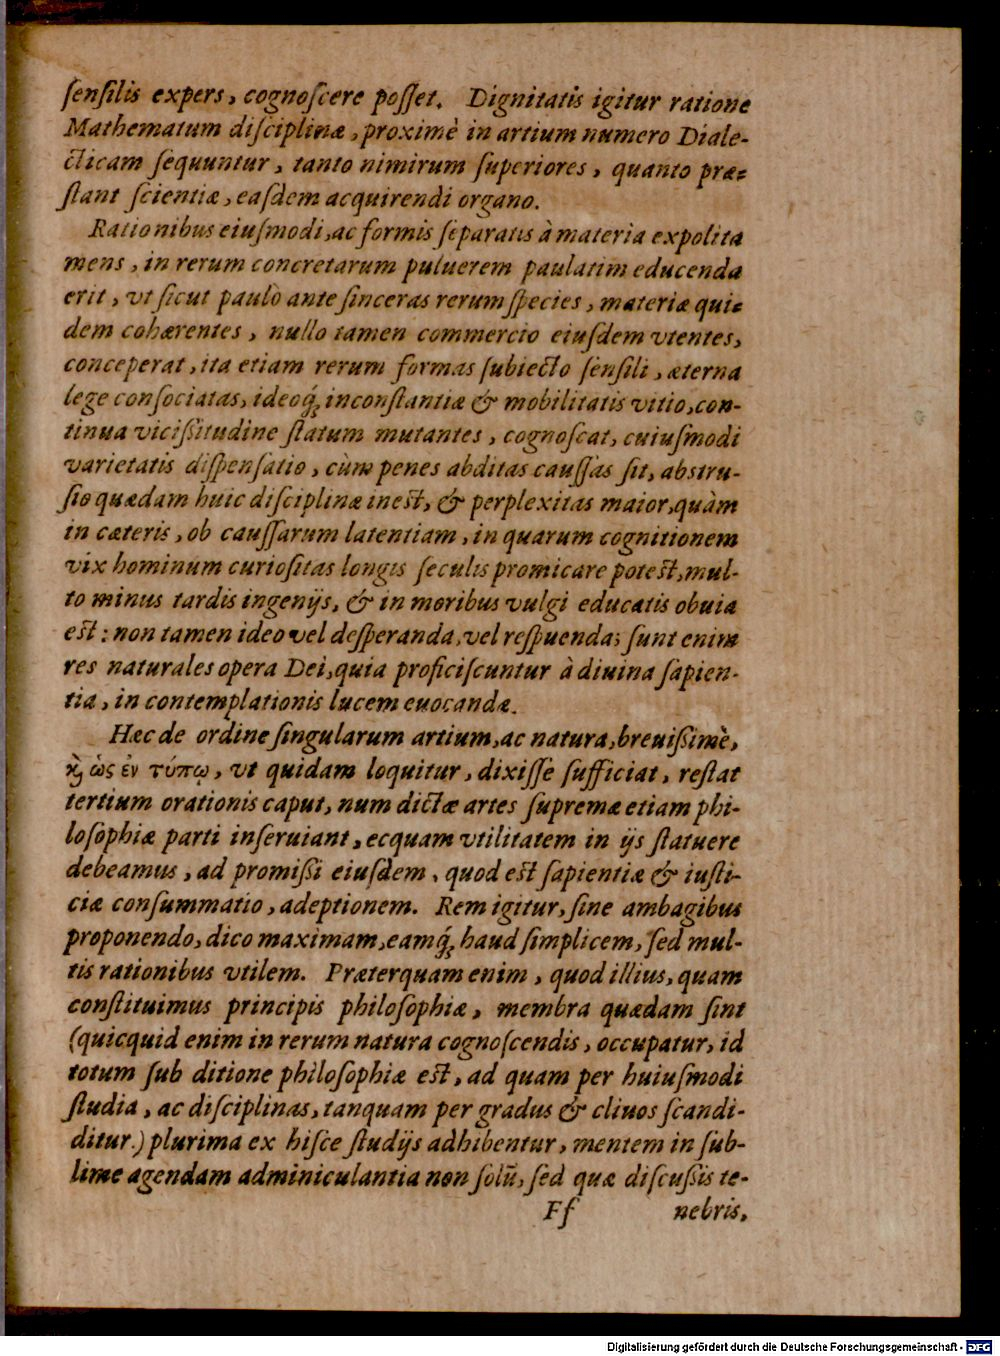 ſenſilis expers, cognoſcere poſſet. Dignitatis igitur ratione
Mathematum diſciplinæ, proximè in artium numero Diale-
cticam ſequuntur, tanto nimirum ſuperiores, quanto præ-
ſtant ſcientiæ, eaſdem acquirendi organo.
Rationibus eiuſmodi, ac formis ſeparatis à materia expolita
mens, in rerum concretarum puluerem paulatim educenda
erit, vt ſicut paulò ante ſinceras rerum ſpecies, materiæ qui-
dem cohærentes, nullo tamen commercio eiuſdem vtentes,
conceperat, ita etiam rerum formas ſubiecto ſenſili, æterna
lege conſociatas, ideoq́; inconſtantiæ & mobilitatis vitio, con-
tinua viciſsitudine ſtatum mutantes, cognoſcat, cuiuſmodi
varietatis diſpenſatio, cùm penes abditas cauſſas ſit, abstru-
ſio quædam huic diſciplinæ inest, & perplexitas maior, quàm
in cæteris, ob cauſſarum latentiam, in quarum cognitionem
vix hominum curioſitas longis ſeculis promicare potest, mul-
to minus tardis ingenijs, & in moribus vulgi educatis obuia
est: non tamen ideo vel deſperanda, vel reſpuenda; ſunt enim
res naturales opera Dei, quia proficiſcuntur à diuina ſapien-
tia, in contemplationis lucem euocandæ.
Hæc de ordine ſingularum artium, ac natura, breuiſsimè,
κ̀ ὡς ἐν τύπῳ, vt quidam loquitur, dixiſſe ſufficiat, reſtat
tertium orationis caput, num dictæ artes ſupremæ etiam phi-
loſophiæ parti inſeruiant, ecquam vtilitatem in ijs ſtatuere
debeamus, ad promiſsi eiuſdem, quod est ſapientiæ & iuſti-
ciæ conſummatio, adeptionem. Rem igitur, ſine ambagibus
proponendo, dico maximam, eamq́; haud ſimplicem, ſed mul-
tis rationibus vtilem. Præterquam enim, quod illius, quam
conſtituimus principis philoſophiæ, membra quædam ſint
(quicquid enim in rerum natura cognoſcendis, occupatur, id
totum ſub ditione philoſophiæ est, ad quam per huiuſmodi
ſtudia, ac diſciplinas, tanquam per gradus & cliuos ſcandi-
ditur.) plurima ex hiſce ſtudijs adhibentur, mentem in ſub-
lime agendam adminiculantia non ſolũ, ſed quæ diſcuſsis te-
Ff nebris,
Digitalisierung gefördert durch die Deutsche Forschungsgemeinschaft - DFG